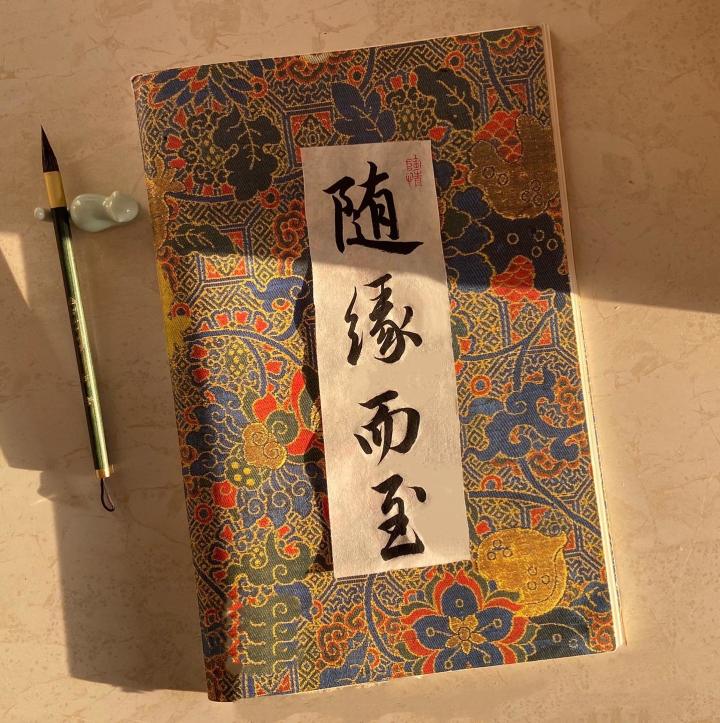 随缘而至